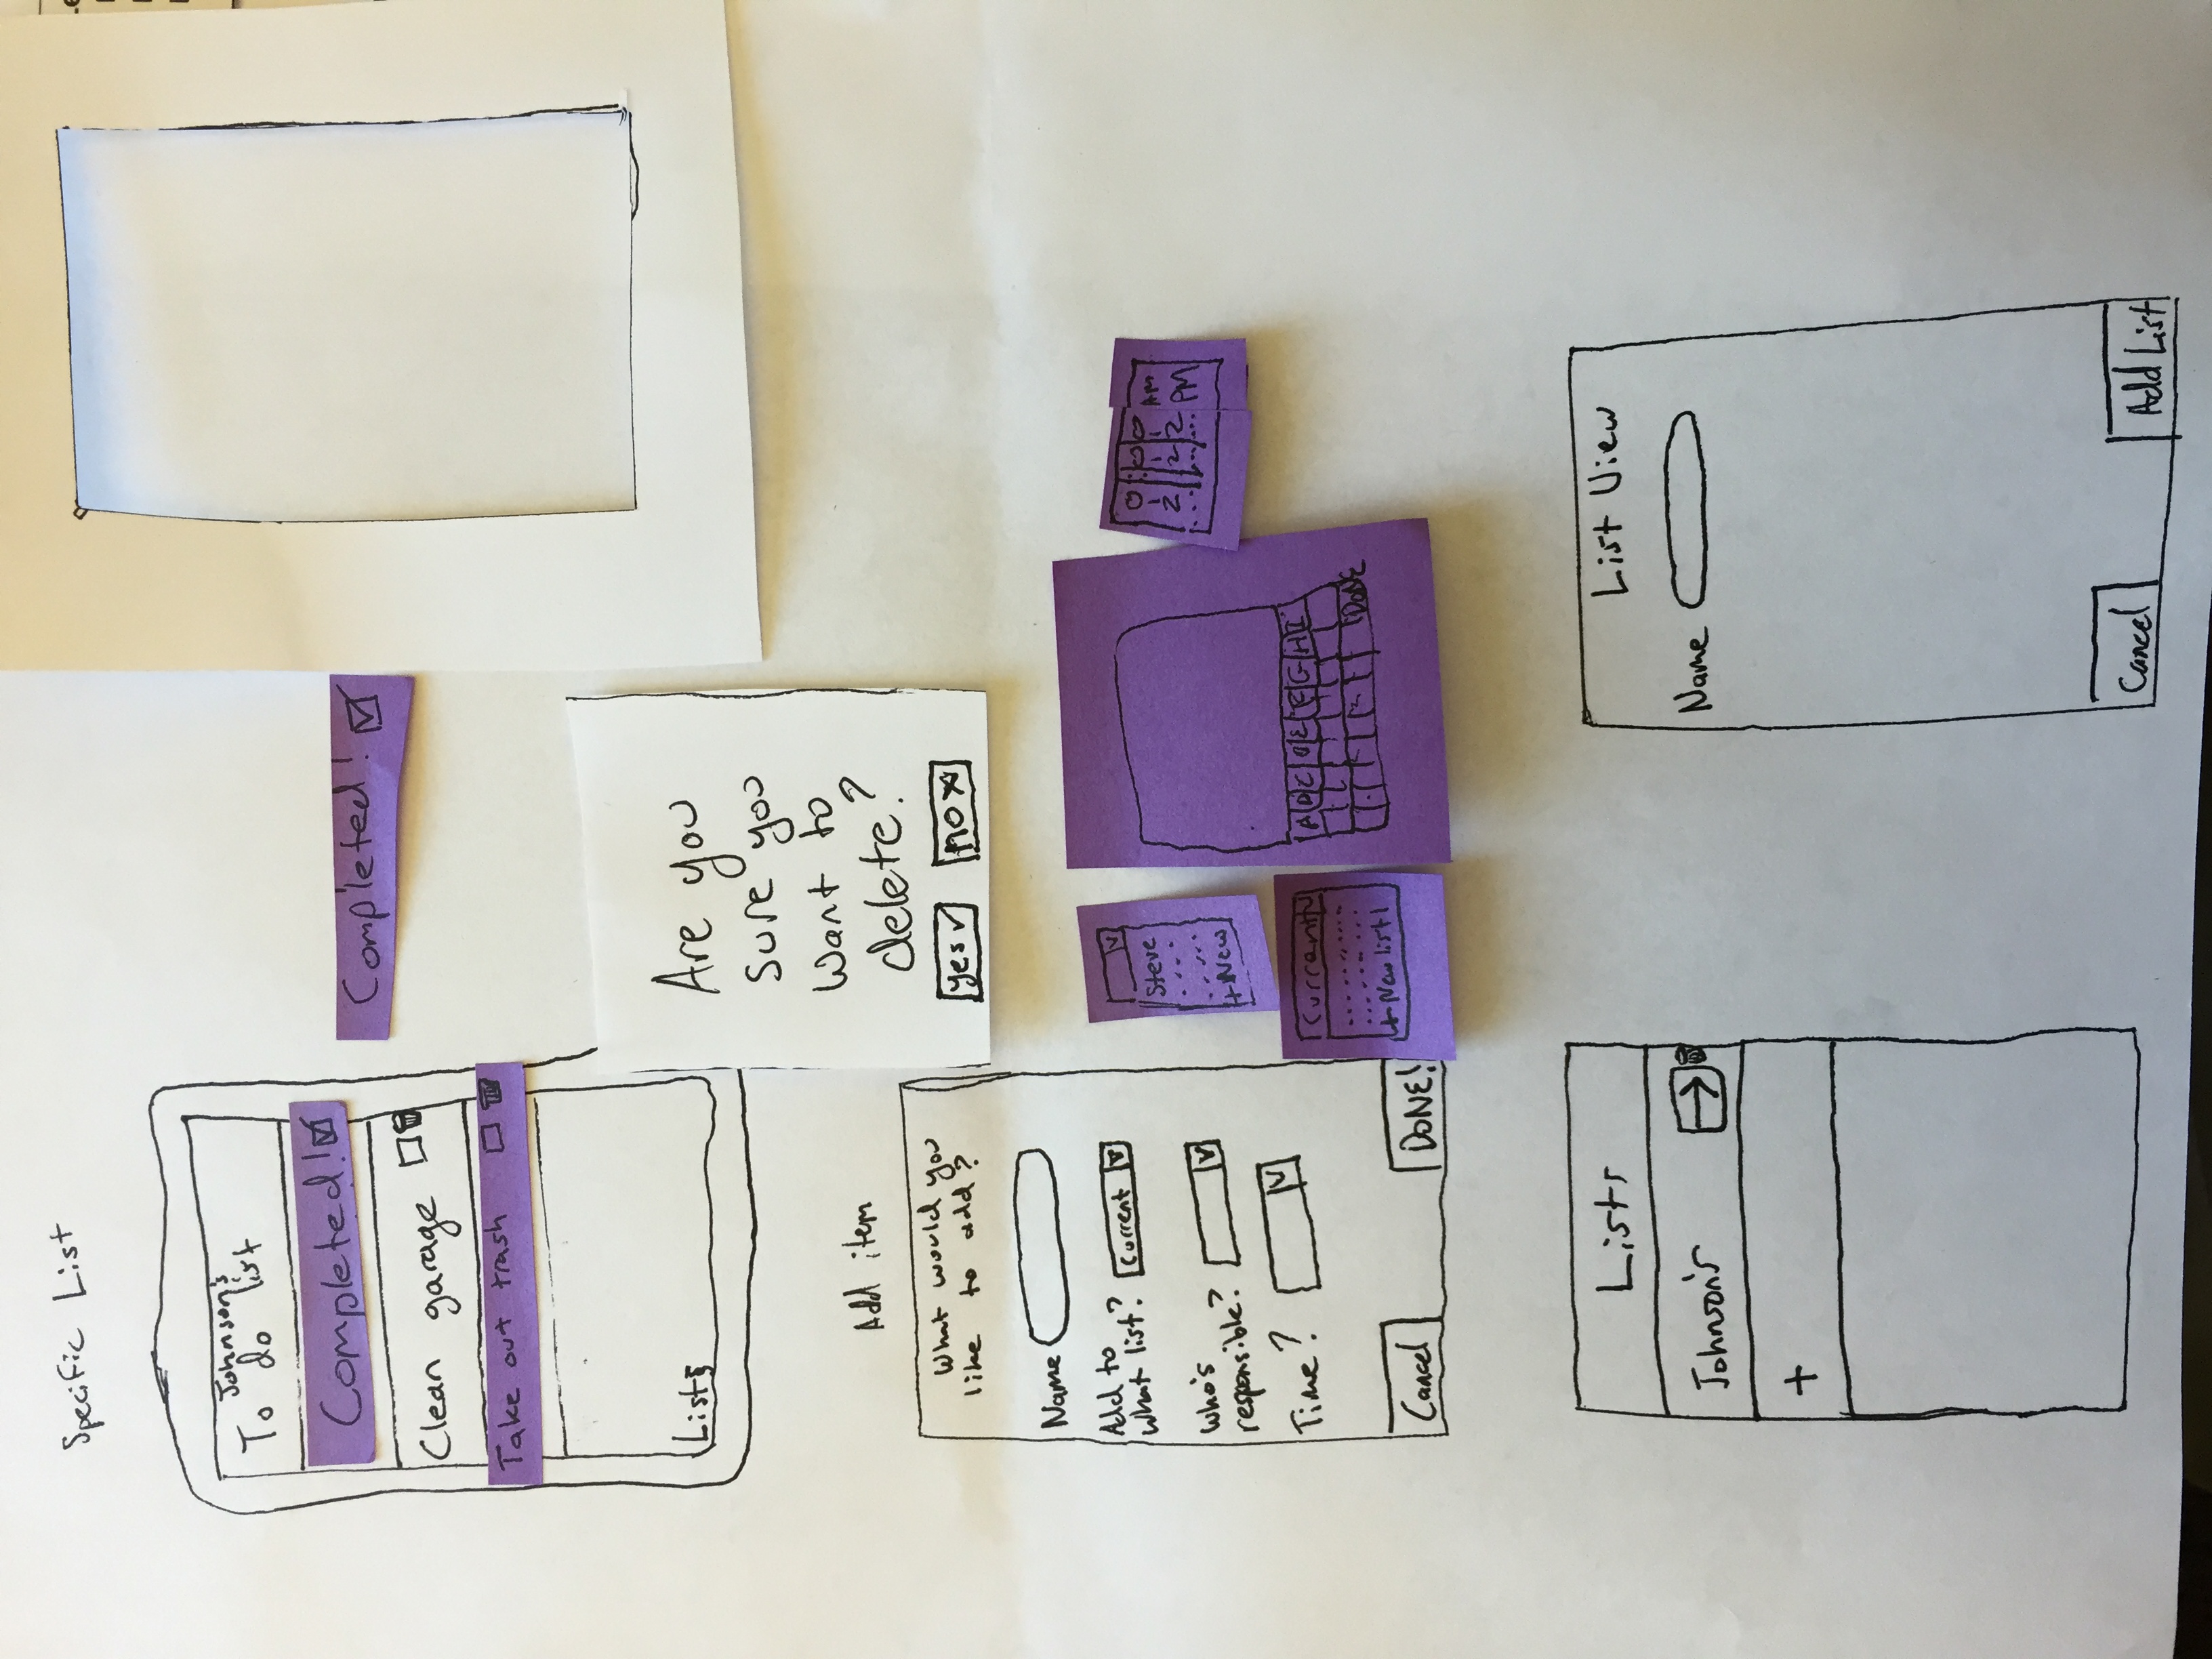 Specific List
Johnson's
To do list
Completed!
Clean garage
Take out trash
Lists
Completed!
Are you
sure you
want to
delete?
yes
no
Add item
What would you
like to add?
Name
Add to
what list?
Current
Who's
responsible?
Time?
Cancel
DONE!
Steve
+New
Current
+ New list
A B C D E F G H I
DONE
0 : 0 0 AM
1 1 1
2 2 2 PM
Lists
Johnson's
+
List View
Name
Cancel
Add List